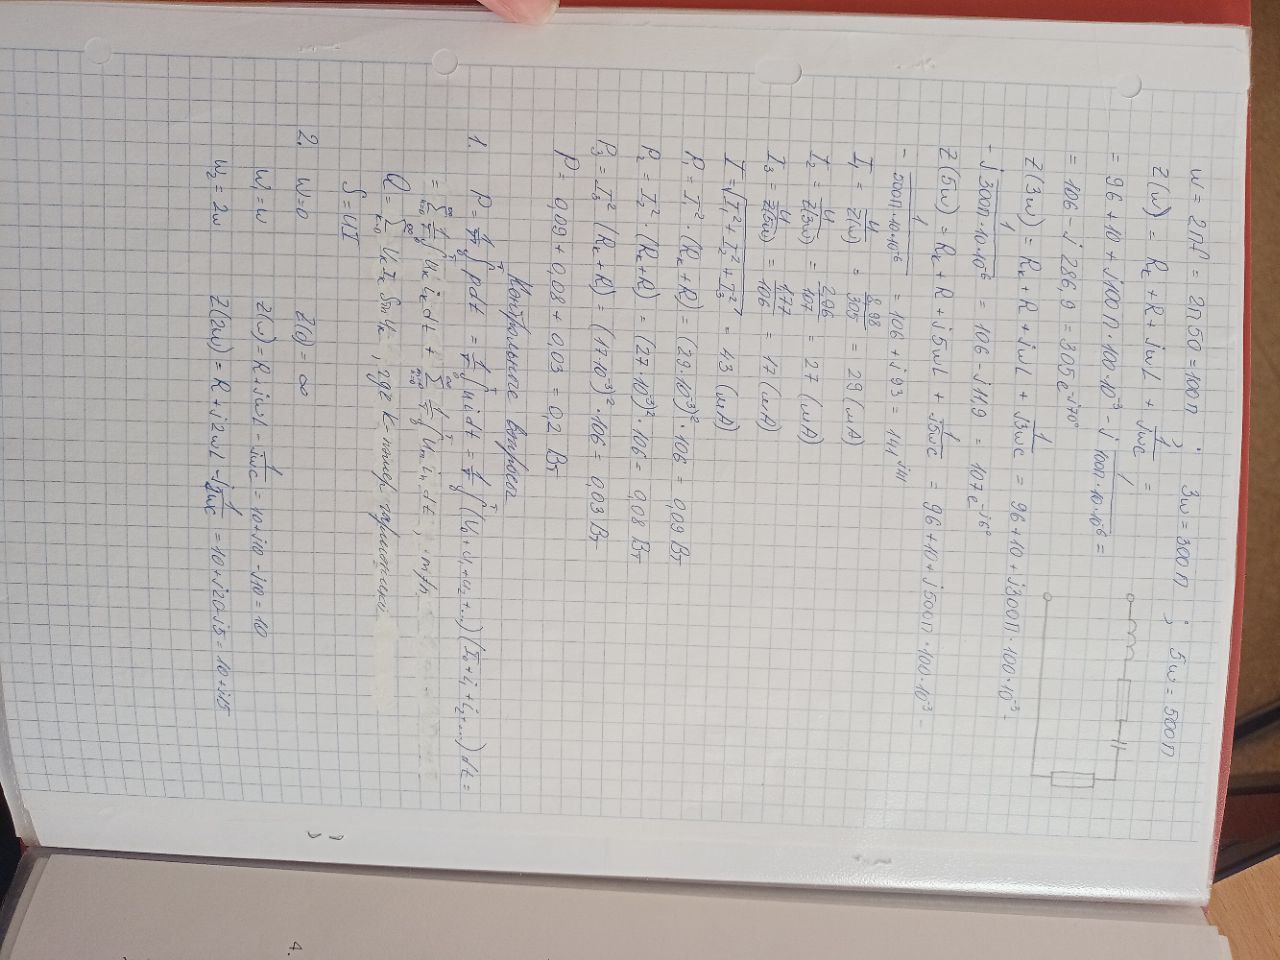 ω = 2πf = 2π50 = 100π ; 3ω = 300π ; 5ω = 500π
Z(ω) = Rк + R + jωL + 1/jωc =
= 96 + 10 + j100π·100·10⁻³ - j 1/100π·10·10⁻⁶ =
= 106 - j 286,9 = 305e^-j70°
Z(3ω) = Rк + R + jωL + 1/j3ωc = 96 + 10 + j300π·100·10⁻³ -
- j 1/300π·10·10⁻⁶ = 106 - j11,9 = 107e^-j6°
Z(5ω) = Rк + R + j5ωL + 1/j5ωc = 96 + 10 + j500π·100·10⁻³ -
- 1/500π·10·10⁻⁶ = 106 + j93 = 141^j41
I₁ = U/Z(ω) = 8,98/305 = 29 (мА)
I₂ = U/Z(3ω) = 2,96/107 = 27 (мА)
I₃ = U/Z(5ω) = 1,77/106 = 17 (мА)
I = √(I₁² + I₂² + I₃²) = 43 (мА)
P₁ = I₁² · (Rк + R) = (29·10⁻³)² · 106 = 0,09 Вт
P₂ = I₂² · (Rк + R) = (27·10⁻³)² · 106 = 0,08 Вт
P₃ = I₃² (Rк + R) = (17·10⁻³)² · 106 = 0,03 Вт
P = 0,09 + 0,08 + 0,03 = 0,2 Вт
Контрольные вопросы
1. P = 1/T ∫₀ᵀ pdt = 1/T ∫₀ᵀ uidt = 1/T ∫₀ᵀ (U₀ + u₁ + u₂ + ...) (I₀ + i₁ + i₂ + ...) dt =
= ∑ 1/T ∫₀ᵀ uₖ iₖ dt + ∑ 1/T ∫₀ᵀ uₘ iₙ dt , m≠n
Q = ∑ Uₖ Iₖ Sin φₖ , где k - номер гармоники
S = UI
2. ω = 0 Z(0) = ∞
ω₁ = ω Z(ω) = R + jωL - 1/jωc = 10 + j10 - j10 = 10
ω₂ = 2ω Z(2ω) = R + j2ωL - j 1/2ωc = 10 + j20 - j5 = 10 + j15
4.